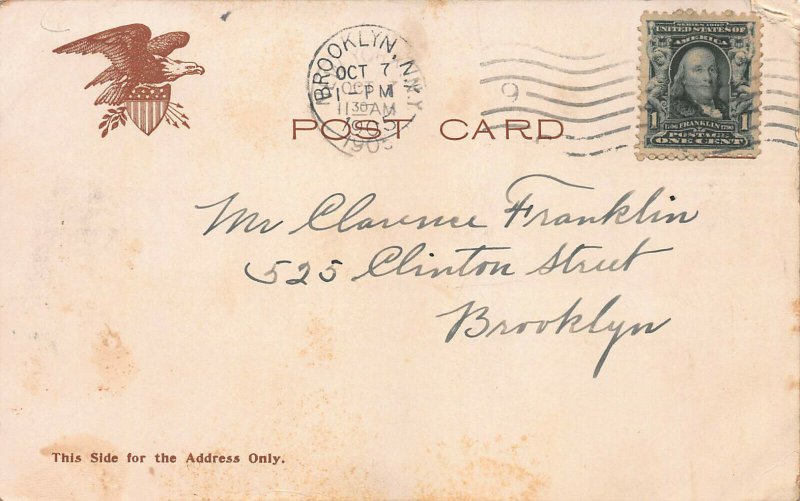 BROOKLYN, N.Y.
OCT 7
1-PM
1130AM
1905
POST CARD
SERIES 1902
UNITED STATES OF
AMERICA
1 1
FRANKLIN
POSTAGE
ONE CENT
Mr Clarence Franklin
525 Clinton Street
Brooklyn
This Side for the Address Only.